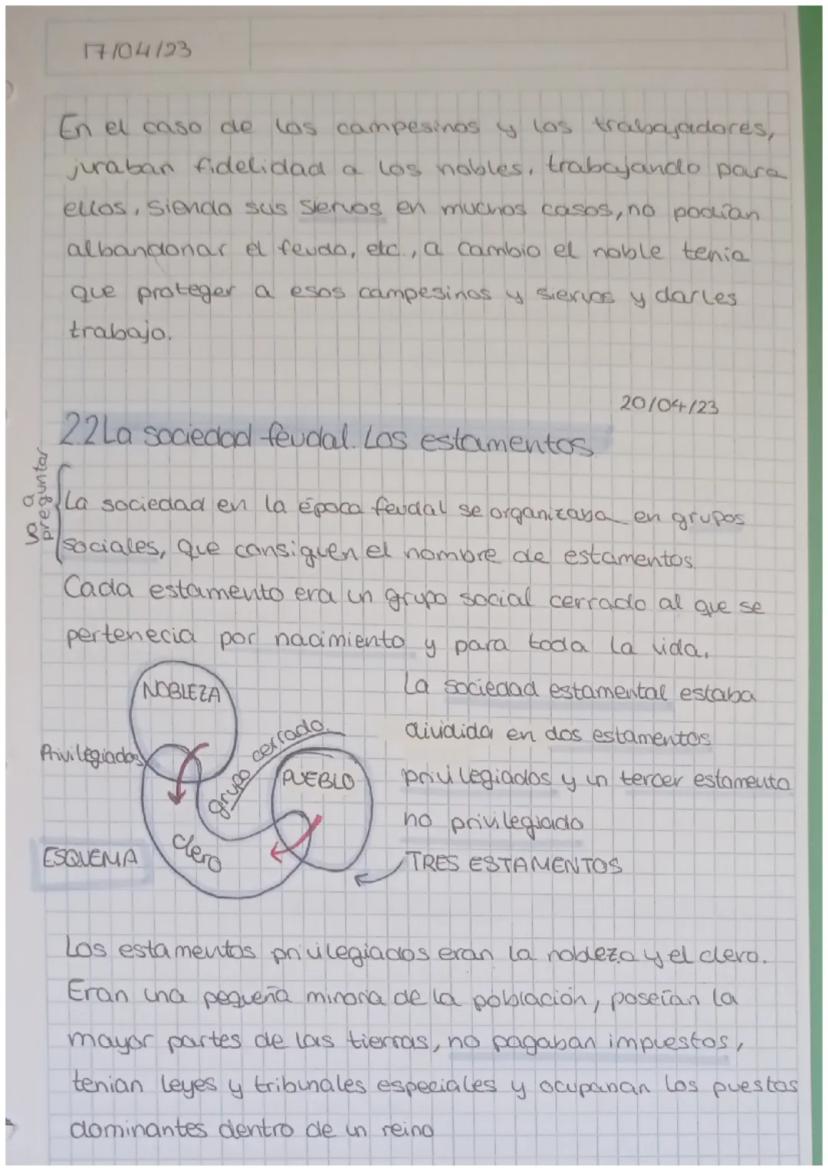 17/04/23
En el caso de los campesinos y los trabajadores,
juraban fidelidad a los nobles, trabajando para
ellos, siendo sus siervos en muchos casos, no podían
albandonar el feudo, etc., a cambio el noble tenia
que proteger a esos campesinos y siervos y darles
trabajo.
20/04/23
2.2 La sociedad feudal. Los estamentos
preguntar
La sociedad en la época feudal se organizaba en grupos
sociales, que consiguen el nombre de estamentos
Cada estamento era un grupo social cerrado al que se
pertenecia por nacimiento y para toda la vida.
NOBLEZA
Privilegiados
grupo cerrado
PUEBLO
clero
ESQUEMA
La sociedad estamental estaba
dividida en dos estamentos
privilegiados y un tercer estamento
no privilegiado
TRES ESTAMENTOS
Los estamentos privilegiados eran la nobleza y el clero.
Eran una pequeña minoria de la población, poseían la
mayor partes de las tierras, no pagaban impuestos,
tenian leyes y tribunales especiales y ocupanan los puestos
dominantes dentro de un reino